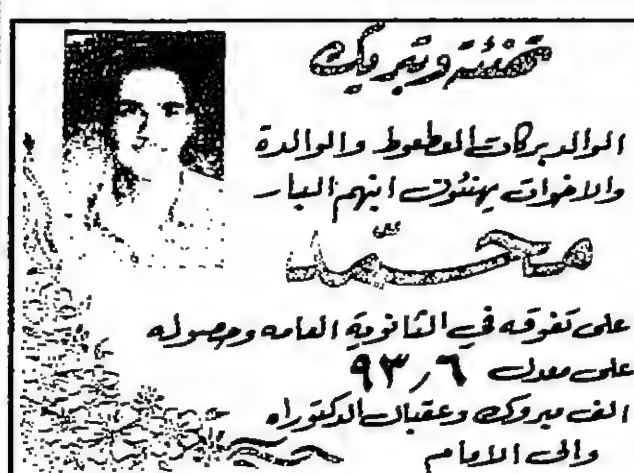 تهنئة وتبريك
الوالد بركات العطعوط والوالدة
والاخوات يهنئون ابنهم البار
محمد
على تفوقه في الثانوية العامه وحصوله
على معدل ٩٣٫٦
الف مبروك وعقبال الدكتوراه
والى الامام